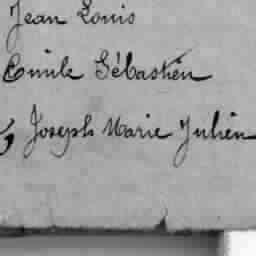 Jean Louis
Emile Sébastien
Joseph Marie Julien